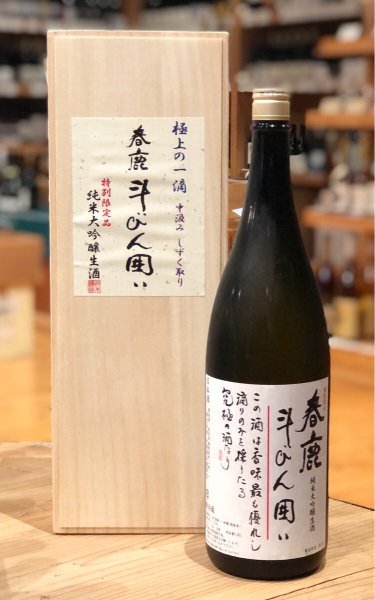 極上の一滴
中汲み しずく取り
春鹿
斗びん囲い
特別限定品
純米大吟醸生酒
春鹿
斗びん囲い
純米大吟醸生酒
この酒は香味最も優れし
滴りのみを採りたる
究極の酒なり